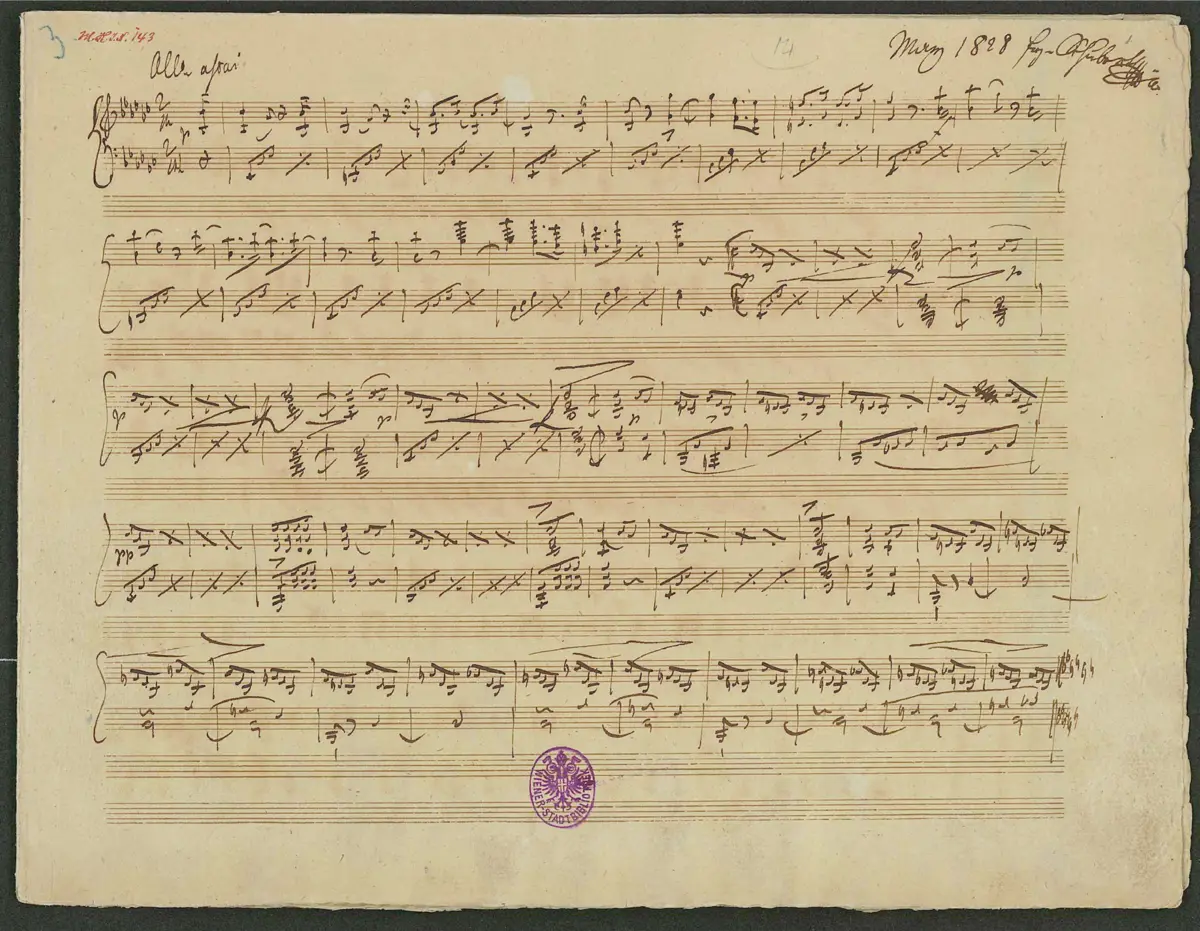 3
M.H.I.N. 143
14
März 1828 Frz. Schubert
Allo assai
p
p
p
pp
WIENER-STADTBIBLIOTHEK